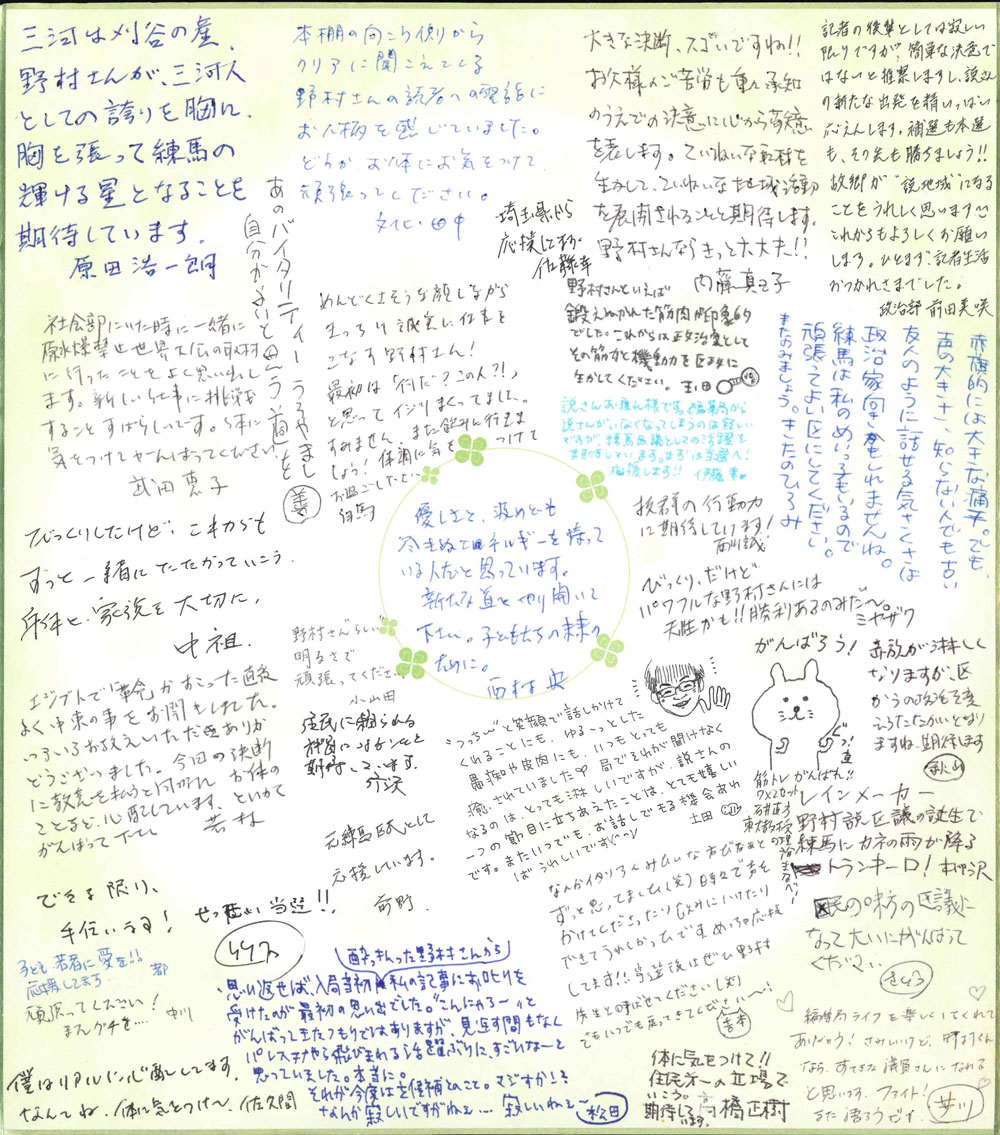 三河は刈谷の産、
野村さんが、三河人
としての誇りを胸に、
胸を張って練馬の
輝ける星となることを
期待しています。
原田浩一朗
本棚の向こう側から
クリアに聞こえてくる
野村さんの読者への電話に
お人柄を感じていました。
どうか、お体にお気をつけて、
頑張ってください。
文化・田中
大きな決断、スゴいですね!!
お父様のご苦労も重々承知
のうえでの決意に心から敬意
を表します。ていねいな取材を
生かして、ていねいな地域活動
を展開されることと期待します。
野村さんならきっと大丈夫!!
内藤真己子
記者の後輩としては寂しい
限りですが、簡単な決意で
はないと推察しますし、説さん
の新たな出発を精いっぱい
応えんします。補選も本選
も、その先も勝ちましょう!!
故郷が“説地域”になる
ことをうれしく思います
これからもよろしくお願い
します。ひとまず、記者生活
おつかれさまでした。
政治部 前田美咲
埼玉県から
応援してます。
佐藤幸
あのバイタリティーうらやまし
自分がよいと思う道を
善
社会部にいた時に一緒に
原水爆禁止世界大会の取材
に行ったことをよく思い出し
ます。新しい仕事に挑戦を
することすばらしいです。体に
気をつけてがんばってください。
武田恵子
めんどくさそうな顔しながら
きっちり誠実に仕事を
こなす野村さん!
最初は「何だ?この人?!」
と思ってイジりまくってました。
すみません。また飲みに行きま
しょう!体調に気をつけて
お過ごしください
野村さんといえば
鍛えぬかれた筋肉が印象的
でした。これからは政治家として
その筋力と機動力を区政に
生かしてください。
説さんお疲れ様です。編集局から
説さんがいなくなってしまうのは寂しい
ですが、練馬区議としての活躍を
期待しています。まずは当選へ!
応援します!! 伊藤幸
赤旗的には大きな痛手。でも、
声の大きさ、知らない人でも古い
友人のように話せる気さくさは
政治家向きかもしれませんね。
練馬は私のめいっ子もいるので
頑張ってよい区にしてください。
またのみましょう。きたのひろみ
びっくりしたけど、これからも
ずっと一緒にたたかっていこう。
身体と、家族を大切に。
中祖.
優しさと、汲めども
尽きぬエネルギーを持って
いる人だと思っています。
新たな道を切り開いて
下さい。子どもたちの未来の
ために。
西村央
抜群の行動力
に期待しています!
びっくり、だけど
パワフルな野村さんには
天性かも!!勝利あるのみだ〜。
ミヤザワ
野村さんらしい
明るさで
頑張ってください
小山田
住民に頼られる
議員になることを
期待しています。
エジプトで「革命」がおこった直後
よく中東の事をお聞きしました。
いろいろお教えいただきありが
とうございました。今回の決断
に敬意を払うと同時に、お体の
ことなど、心配しています。どうか
がんばって下さい
若林
“つっち〜”と笑顔で話しかけて
くれることにも、ゆるーっとした
愚痴や皮肉にも、いつもとっても
癒やされていました 局でそれが聞けなく
なるのは、とっても淋しいですが、説さんの
一つの節目に立ちあえたことは、とても嬉しい
です。またいつでも、お話しできる機会あれ
ばうれしいです(^^)/
土田
がんばろう!
筋トレがんばれ!!
赤旗が淋しく
なりますが、区
からの政治を変
えるたたかいとなり
ますね。期待します
秋山
レインメーカー
野村説区議の誕生で
練馬にカネの雨が降る
トランキーロ!
元練馬区民として
応援しています。
前野
できる限り、
手伝いする!
ぜったい当選!!
子ども 若者に愛を!!
応援してます 都
頑張ってください!
まえグチを…
中川
僕はリアルに心配してます。
なんてね、体に気をつけて〜、佐久間
酔っぱらった野村さんから
思い返せば、入局当初、私の記事にお叱りを
受けたのが最初の思い出でした。“こんにゃろー”と
がんばってきたつもりではありますが、見返す間もなく
パレスチナやら飛びまわる活躍ぶりに、すごいな〜と
思っていました。本当に。
それが今度は立候補とのこと。マジすか!?
なんか寂しいですがねぇ… 寂しいねぇ〜
松田
なんかイタリア人みたいな方だなあと
ずっと思ってました(笑) 時々で声を
かけてくださったり飲みに行けたり
できてうれしかったです。めっちゃ応援
してます!!当選後はぜひ野村
先生と呼ばせてください(笑)
でもいつでも戻ってきてください〜!
吉本
区民の味方の区議に
なって大いにがんばって
ください
さとう
体に気をつけて!!
住民第一の立場で
いこう。
期待しています。高橋正樹
編集局ライフを楽しくしてくれて
ありがとう!さみしいけど、野村くん
なら、すてきな議員さんになれる
と思います。ファイト!
また語ろうぜ。
井川